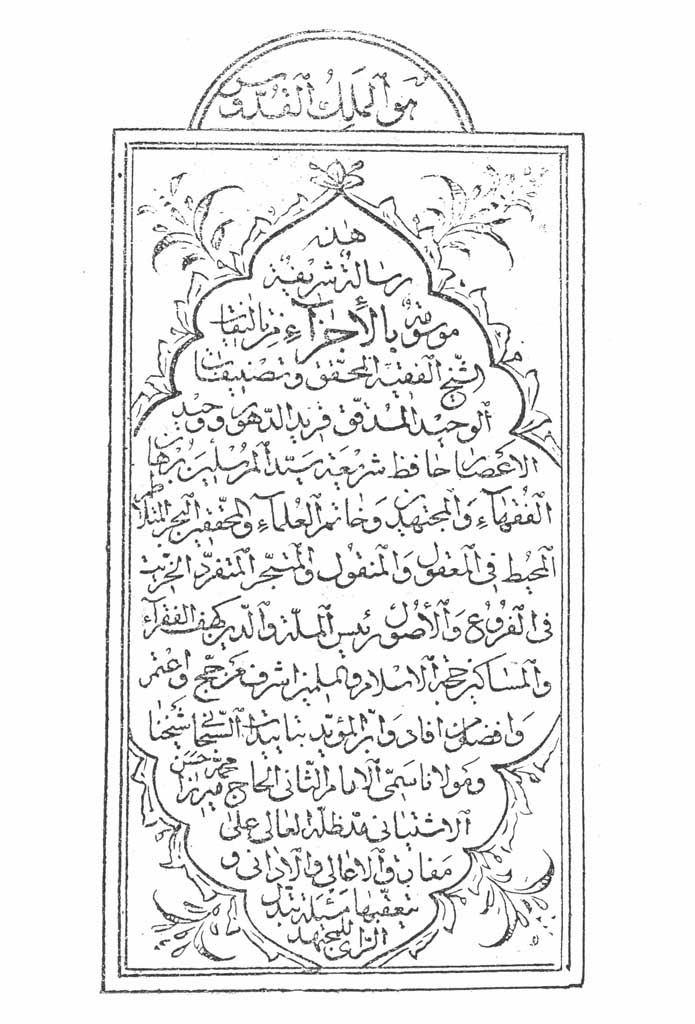 هو الملك القدوس
هذه
رسالة شريفة
موسومة بالأجزاء من تأليفات
الشيخ الفقيه المحقق وتصنيفات
الوحيد المدقق فريد الدهور ووحيد
الاعصار حافظ شريعة سيد المرسلين برهان
الفقهاء والمجتهدين وخاتم العلماء والمحققين البحر المتلاطم
المحيط في المعقول والمنقول والمتبحر المتفرد الخريت
في الفروع والأصول رئيس الملة والدين كهف الفقراء
والمساكين حجة الاسلام والمسلمين اشرف من حج واعتمر
وافضل من افاد وابر المؤيد بتاييدات السبحاني شيخنا
ومولانا سمي الامام الثاني الحاج ميرزا محمد حسن
الاشتياني مد ظله العالي على
مفارق الاعالي والاداني و
يتعقبها مسئلة تبدل
الراي للمجتهد